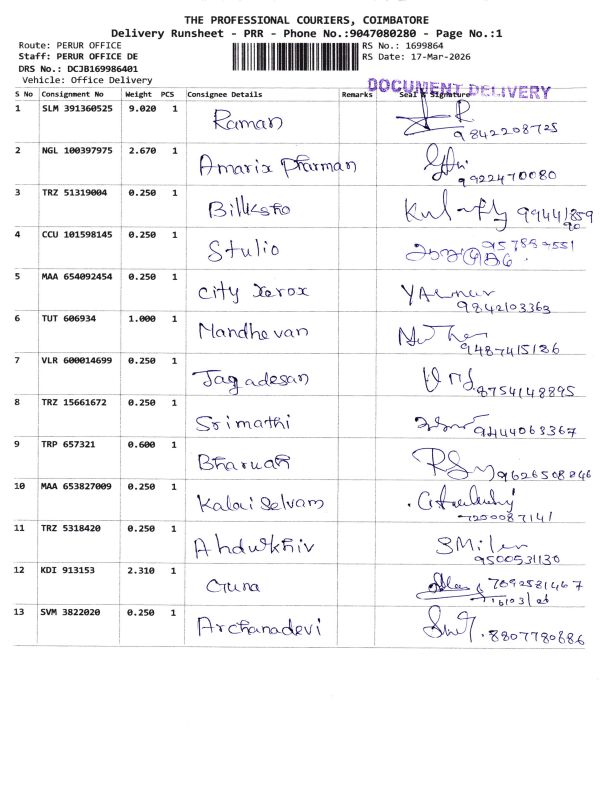 THE PROFESSIONAL COURIERS, COIMBATORE
Delivery Runsheet - PRR - Phone No.:9047080280 - Page No.:1
Route: PERUR OFFICE
RS No.: 1699864
Staff: PERUR OFFICE DE
RS Date: 17-Mar-2026
DRS No.: DCJB169986401
Vehicle: Office Delivery
DOCUMENT DELIVERY
S No Consignment No Weight PCS Consignee Details Remarks Seal & Signature
1 SLM 391360525 9.020 1 Raman
9842208725
2 NGL 100397975 2.670 1 Amarix Pharman
9922470080
3 TRZ 51319004 0.250 1
4 CCU 101598145 0.250 1 Stulio
5 MAA 654092454 0.250 1 City Xerox
9842103363
6 TUT 606934 1.000 1 Mandhevan
9487415186
7 VLR 600014699 0.250 1 Jagadesan
8754148895
8 TRZ 15661672 0.250 1 Srimathi
9444063367
9 TRP 657321 0.600 1
9626508846
10 MAA 653827009 0.250 1 Kalai Selvam
7200087141
11 TRZ 5318420 0.250 1
9500531130
12 KDI 913153 2.310 1 Guna
7092581467
13 SVM 3822020 0.250 1 Archanadevi
8807780686